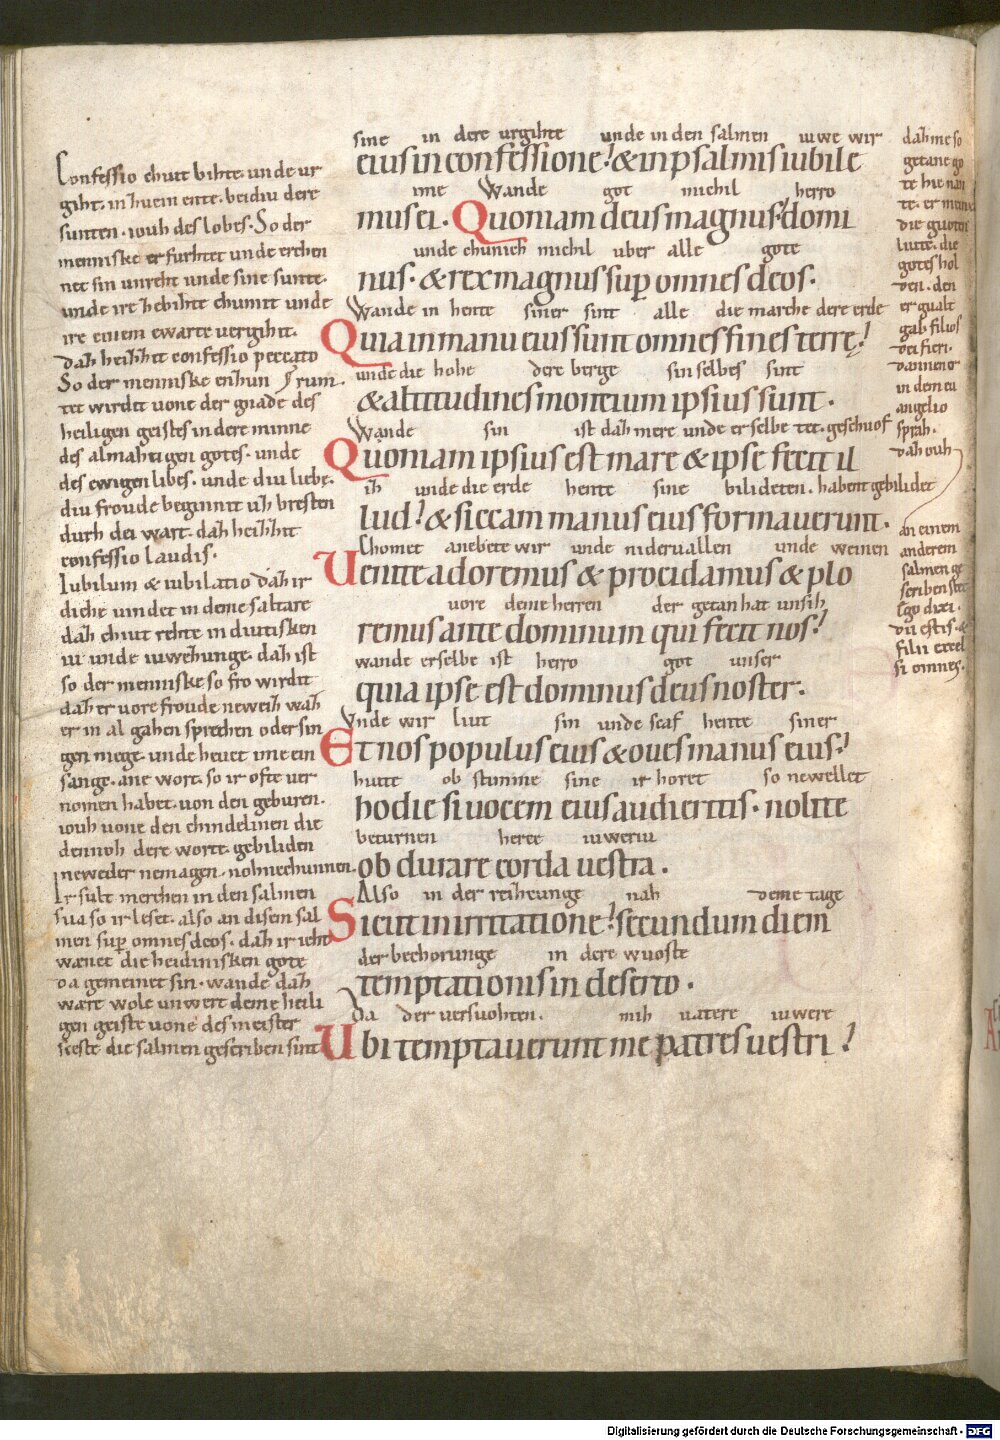 Confessio chutt bihte. unde ur
giht. in huem ente. beidiu dere
sunten. iouh des lobes. So der
menniske er furhtet unde erchen
net sin unreht unde sine sunte.
unde ire hebihte chumit unde
ire einem ewarte vergiht.
daz heizzit confessio peccato
rum. So der menniske enzun
tet wirdit uone der gnade des
heiligen geistes in dere minne
des almahtigen gotes. unde
des ewigen libes. unde diu liebe.
diu froude beginnit uz bresten
durh dei wart. daz heizzit
confessio laudis.
Iubilum & iubilatio daz ir
diche uindet in deme saltare
daz chiut rehte in diutisken
iu unde iuwezunge. daz ist
so der menniske so fro wirdit
daz er uore froude neweiz waz
er in al gahen sprechen oder sin
gen mege. unde heuet ime ein
sange. ane wort. so ir ofte uer
nomen habet. uon den geburen.
iouh uone den chindelinen die
dennoh dere worte. gebiliden
neweder nemagen. noh nechunnen.
Ir sult merchen in den salmen
sua so ir leset. also an disem sal
men sup omnes deos. daz ir ieht
wænet die heidinisken gote
da gemeinet sin. wande daz
wært wole unwert deme heili
gen geiste uone des meister
scefte die salmen gescriben sint
sine in dere urgihte unde in den salmen iuwe wir
eius in confessione! & in psalmis iubile
ime Wande got michil herro
mus ei. Quoniam deus magnus. domi
unde chunich michil uber alle gote
nus. & rex magnus sup omnes deos.
Wande in hente siner sint alle die marche dere erde
Quia in manu eius sunt omnes fines terre!
unde die hohe dere berge sin selbes sint
& altitudines montium ipsius sunt.
Wande sin ist daz mere unde er selbe tet. geschuof
Quoniam ipsius est mare & ipse fecit il
iz unde die erde hente sine bilideten. habent gebilidet
lud! & siccam manus eius formauerunt.
Chomet anebete wir unde nideruallen unde weinen
Uenite adoremus & procidamus & plo
uore deme herren der getan hat unsih
remus ante dominum qui fecit nos!
wande er selbe ist herro got unser
quia ipse est dominus deus noster.
Unde wir liut sin unde scaf hente siner
Et nos populus eius & oues manus eius!
hutte ob stimme sine ir horet so newellet
hodie si uocem eius audieritis. nolite
beturnen herce iuweriu
ob durare corda uestra.
Also in der reizzunge nah deme tage
Sicut in irritatione! secundum diem
der bechorunge in dere wuoste
temptationis in deserto.
Da der uersuohten. mih uatere iuwere
Ubi temptauerunt me patres uestri!
daz me so
getane go
te hie nan
te. er meinet
die guoten
liutte. die
gotes hol
den. den
er gualt
gab filios
dei fieri.
da uone er
in dem eu
angelio
sprah.
daz ouh
an einem
anderem
salmen ge
scriben stet
Ego dixi.
dii estis. &
filii excel
si omnes.
Digitalisierung gefördert durch die Deutsche Forschungsgemeinschaft - DFG